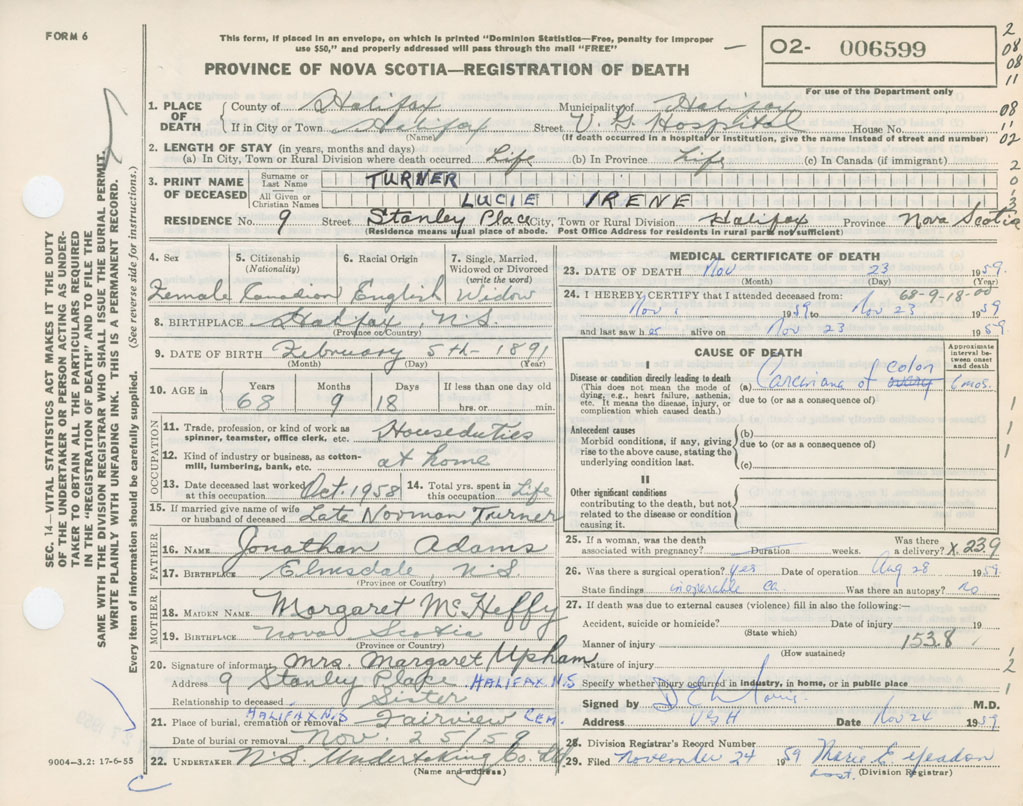 FORM 6
This form, if placed in an envelope, on which is printed "Dominion Statistics—Free, penalty for improper
use $50," and properly addressed will pass through the mail "FREE"
PROVINCE OF NOVA SCOTIA—REGISTRATION OF DEATH
02- 006599
For use of the Department only
2
08
08
11
08
11
02
2
0
1
3
1. PLACE OF DEATH
County of Halifax Municipality of Halifax
If in City or Town Halifax Street V. G. Hospital House No.
(Name) (If death occurred in a hospital or institution, give the name instead of street and number)
2. LENGTH OF STAY (in years, months and days)
(a) In City, Town or Rural Division where death occurred Life (b) In Province Life (c) In Canada (if immigrant)
3. PRINT NAME OF DECEASED
Surname or Last Name TURNER
All Given or Christian Names LUCIE IRENE
RESIDENCE No. 9 Street Stanley Place City, Town or Rural Division Halifax Province Nova Scotia
(Residence means usual place of abode. Post Office Address for residents in rural parts not sufficient)
4. Sex 5. Citizenship (Nationality) 6. Racial Origin 7. Single, Married, Widowed or Divorced (write the word)
Female Canadian English Widow
8. BIRTHPLACE Halifax, N.S.
(Province or Country)
9. DATE OF BIRTH February 5th - 1891
(Month) (Day) (Year)
10. AGE in Years Months Days If less than one day old
68 9 18 hrs. or min.
OCCUPATION
11. Trade, profession, or kind of work as spinner, teamster, office clerk, etc. Houseduties
12. Kind of industry or business, as cotton-mill, lumbering, bank, etc. at home
13. Date deceased last worked at this occupation Oct. 1958 14. Total yrs. spent in this occupation Life
15. If married give name of wife or husband of deceased Late Norman Turner
FATHER
16. NAME Jonathan Adams
17. BIRTHPLACE Elmsdale, N.S.
(Province or Country)
MOTHER
18. MAIDEN NAME Margaret McHeffy
19. BIRTHPLACE Nova Scotia
(Province or Country)
20. Signature of informant Mrs. Margaret Upham
Address 9 Stanley Place HALIFAX N.S
Relationship to deceased Sister
21. Place of burial, cremation or removal HALIFAX N.S Fairview CEM.
Date of burial or removal Nov. 25/59
22. UNDERTAKER N.S. Undertaking Co. Ltd
(Name and address)
MEDICAL CERTIFICATE OF DEATH
23. DATE OF DEATH Nov 23 1959
(Month) (Day) (Year)
68-9-18-00
24. I HEREBY CERTIFY that I attended deceased from:
Nov 1 1959 to Nov 23 1959
and last saw h er alive on Nov 23 1959
CAUSE OF DEATH
Approximate interval between onset and death
I
Disease or condition directly leading to death
(This does not mean the mode of dying, e.g., heart failure, asthenia, etc. It means the disease, injury, or complication which caused death.)
(a) Carcinoma of colon 6 mos.
due to (or as a consequence of)
Antecedent causes
Morbid conditions, if any, giving rise to the above cause, stating the underlying condition last.
(b)
due to (or as a consequence of)
(c)
II
Other significant conditions
contributing to the death, but not related to the disease or condition causing it.
1
1
1
1
25. If a woman, was the death associated with pregnancy? Duration weeks. Was there a delivery? X.239
26. Was there a surgical operation? yes Date of operation Aug 28 1959
State findings inoperable Ca Was there an autopsy? no
27. If death was due to external causes (violence) fill in also the following:—
Accident, suicide or homicide? Date of injury 19
(State which)
Manner of injury 153.8
(How sustained)
Nature of injury
Specify whether injury occurred in industry, in home, or in public place
1
2
1
Signed by M.D.
Address VGH Date Nov 24 1959
28. Division Registrar's Record Number
29. Filed November 24 1959 Marie E. Meadon
Asst. (Division Registrar)
SEC. 14—VITAL STATISTICS ACT MAKES IT THE DUTY
OF THE UNDERTAKER OR PERSON ACTING AS UNDER-
TAKER TO OBTAIN ALL THE PARTICULARS REQUIRED
IN THE "REGISTRATION OF DEATH" AND TO FILE THE
SAME WITH THE DIVISION REGISTRAR WHO SHALL ISSUE THE BURIAL PERMIT.
WRITE PLAINLY WITH UNFADING INK. THIS IS A PERMANENT RECORD.
Every item of information should be carefully supplied. (See reverse side for instructions.)
9004-3.2: 17-6-55